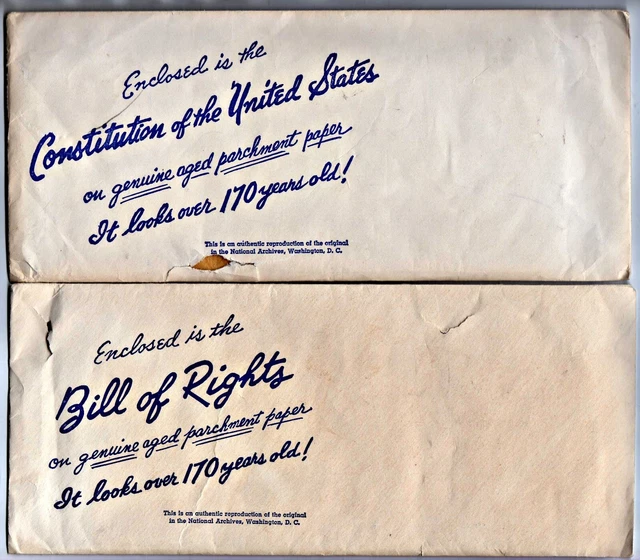 Enclosed is the
Constitution of the United States
on genuine aged parchment paper
It looks over 170 years old!
This is an authentic reproduction of the original
in the National Archives, Washington, D. C.
Enclosed is the
Bill of Rights
on genuine aged parchment paper
It looks over 170 years old!
This is an authentic reproduction of the original
in the National Archives, Washington, D. C.